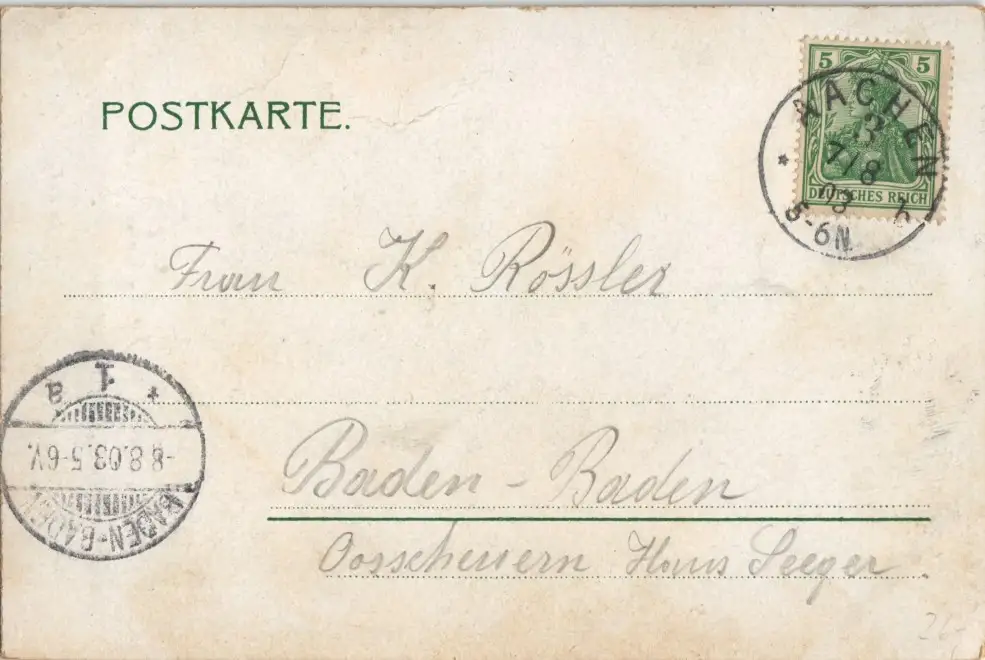 POSTKARTE.
5 5
DEUTSCHES REICH
AACHEN
3
7/8
03
5-6N
* b
Frau K. Rössler
* 1. B
-8.8.03.5-6V.
BADEN-BADEN
Baden-Baden
Oosscheuern Haus Seeger.